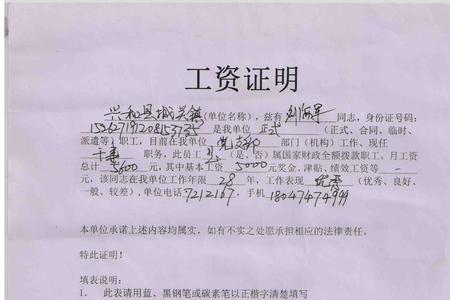 工资证明
兴和县城关镇(单位名称)，兹有刘海军同志，身份证号码：
152627191208153735是我单位正式(正式、合同、临时、
派遣等)职工，目前在我单位党支部部门(机构)工作、现任
干事职务，此员工是(是、否)属国家财政全额拨款职工、月工资
总计5600元，其中基本工资5000元奖金，津贴，绩效工资等一
元，该同志在我单位工作年限28年，工作表现优秀(优秀、良好、
一般、较差)，单位电话7212167，手机18047474999
本单位承诺上述内容均属实，如有不实之处愿承担相应的法律责任。
特此证明！
填表说明：
1. 此表请用蓝、黑钢笔或碳素笔以正楷字清楚填写